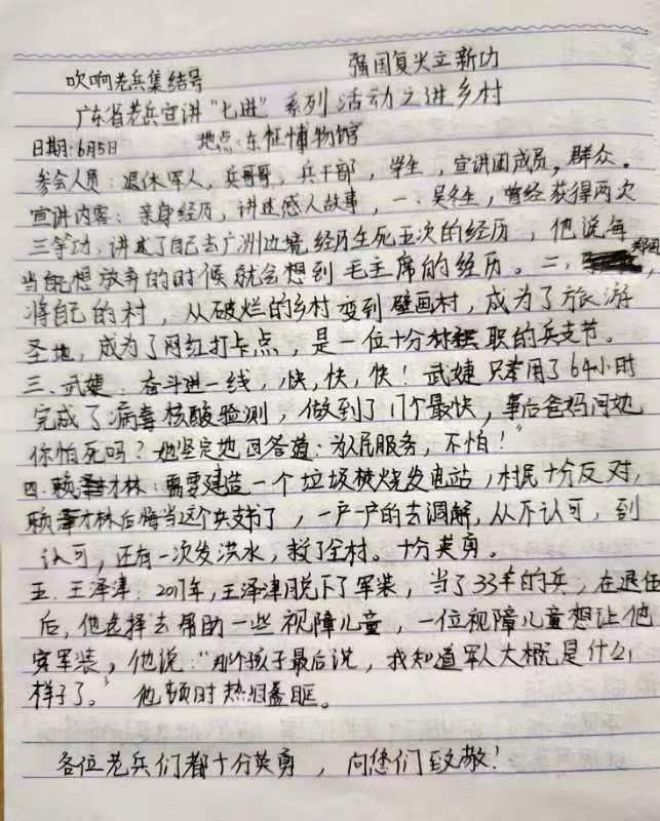 强国复兴立新功
吹响老兵集结号
广东省老兵宣讲“七进”系列活动之进乡村
日期:6月5日 地点:东征博物馆
参会人员:退休军人,兵哥哥,兵干部,学生,宣讲团成员,群众。
宣讲内容:亲身经历,讲述感人故事,一、吴冬生,曾经获得两次
三等功,讲述了自己去广洲边境经历生死五次的经历,他说每
当自己想放弃的时候就会想到毛主席的经历。二、
将自己的村,从破烂的乡村变到壁画村,成为了旅游
圣地,成为了网红打卡点,是一位十分称职的兵支书。
三、武婕:奋斗进一线,快,快,快!武婕只拿用了64小时
完成了病毒核酸验测,做到了17个最快,事后爸妈问她
你怕死吗?她坚定地回答道:为人民服务,不怕!”
四、赖才林:需要建造一个垃圾焚烧发电站,村民十分反对,
赖才林后悔当这个兵支书了,一户一户的去调解,从不认可,到
认可,还有一次发洪水,救了全村。十分英勇。
五、王泽津:2017年,王泽津脱下了军装,当了33年的兵,在退伍
后,他选择去帮助一些视障儿童,一位视障儿童想让他
穿军装,他说:“那个孩子最后说,我知道军人大概是什么
样子了。”他顿时热泪盈眶。
各位老兵们都十分英勇,向您们致敬!